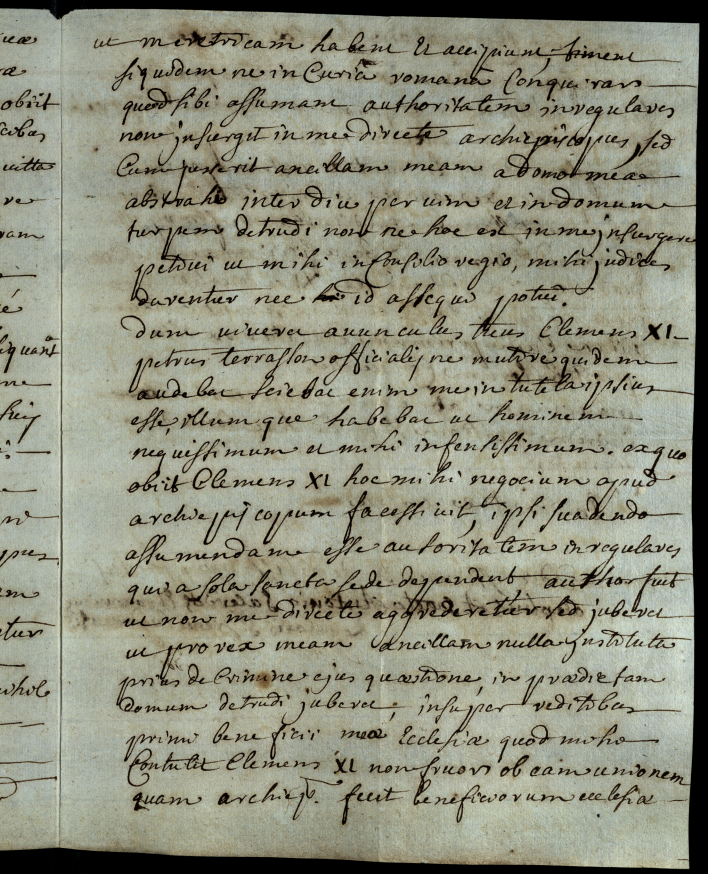 uæ
æ
obiit
ve
ram
é
liquant
ne
pus
em
ntur
ut meretricam habent et accipiunt, timent
siquidem ne in Curiâ romanâ Conquerar
quod sibi assumant authoritatem in regulares
non insurgit in me directe archiepiscopus, sed
Cum jusserit ancillam meam a domo mea
abstrahi interdiu per vim et in domum
turpem detrudi non ne hoc est in me insurgere
petivi ut mihi in Consilio regio, mihi judices
darentur nec id assequi potui.
dum viveret avunculus tuus Clemens XI
petrus terrasson officialis ne mutire quidem
audebat sciebat enim me in tutela ipsius
esse, illumque habebat ut hominem
nequissimum et mihi infensissimum. ex quo
obiit Clemens XI hoc mihi negocium apud
archiepiscopum facessivit, ipsi suadendo
assumendam esse autoritatem in regulares
qui a sola sancta sede dependent author fuit
ut non me directe aggrederetur sed juberet
ut pro vex meam ancillam nulla instituta
prius de Crimine ejus quæstione, in prædictam
domum detrudi juberet; insuper reditibus
primi beneficii meæ Ecclesiæ quod mihi
Contulit Clemens XI non fruor ob eam unionem
quam archiep. fecit beneficiorum ecclesiæ